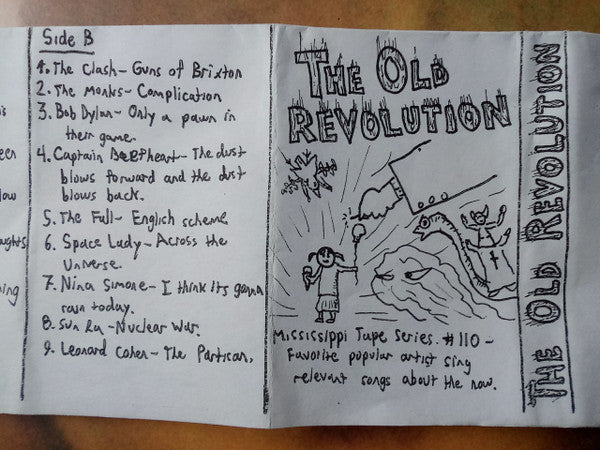 Side B
1. The Clash - Guns of Brixton
2. The Monks - Complication
3. Bob Dylan - Only a pawn in
their game.
4. Captain Beefheart - The dust
blows forward and the dust
blows back.
5. The Fall - English scheme
6. Space Lady - Across the
Universe.
7. Nina Simone - I think its gonna
rain today.
8. Sun Ra - Nuclear War.
9. Leonard Cohen - The Partisan.
THE OLD
REVOLUTION
Mississippi Tape Series. #110 -
Favorite popular artist sing
relevant songs about the now.
THE OLD REVOLUTION